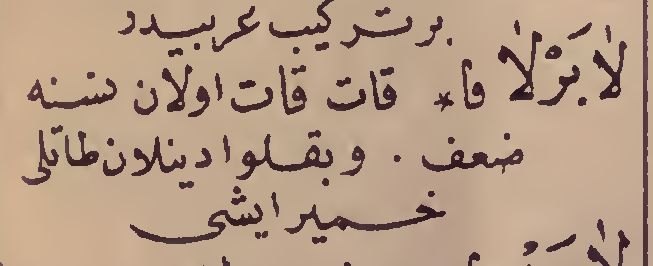 بر تركيب عربيدر
لَا بَرْلَا فا* قات قات اولان نسنه
ضعف . و بقلوا دينلان طاتلى
خمير ايشى